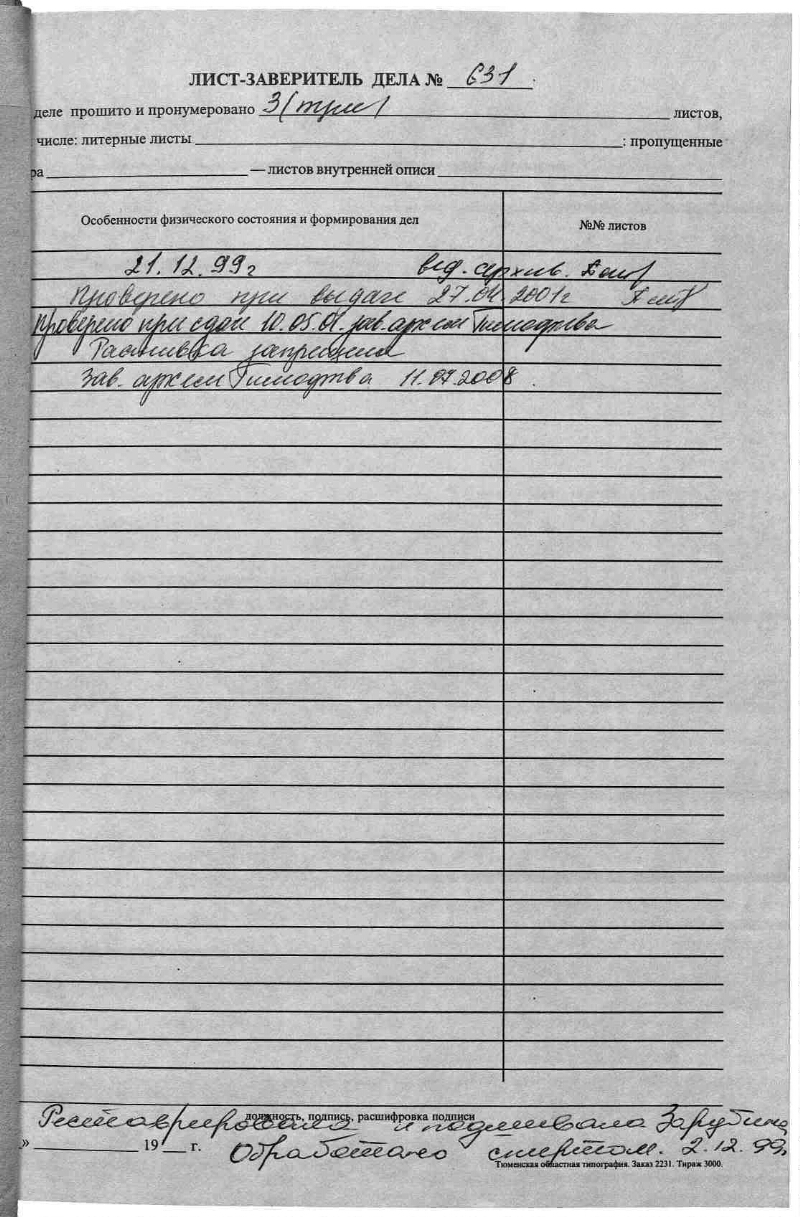 ЛИСТ-ЗАВЕРИТЕЛЬ ДЕЛА № 631
деле прошито и пронумеровано 3 (три) листов,
числе: литерные листы : пропущенные
ра — листов внутренней описи
Особенности физического состояния и формирования дел №№ листов
21.12.99г вед. архив.
Проверено при выдаче 27.04.2001г
Проверено при сдаче 10.05.01. зав. архвом Тимофеева
Расшивка запрещена
Зав. архвом Тимофеева 11.07.2008.
должность, подпись, расшифровка подписи
Реставрировала и подшивала Зарубина
» 19 г. Обработано спиртом. 2.12.99г
Тюменская областная типография. Заказ 2231. Тираж 3000.